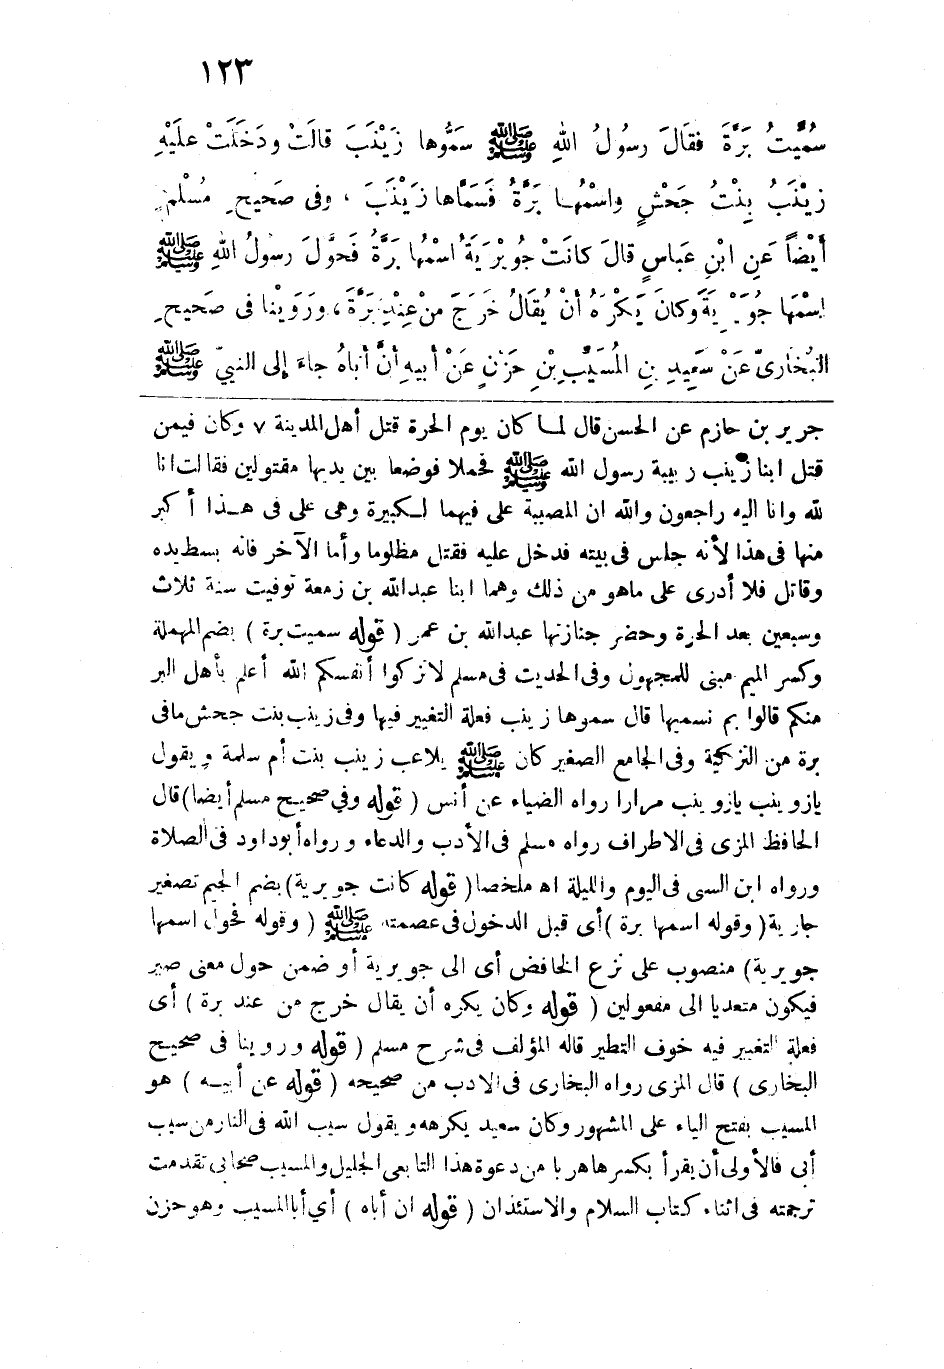 ١٢٣
سُمِّيتُ بَرَّةَ فَقَالَ رسُولُ اللهِ ﷺ سَمُّوها زَيْنَبَ قالَتْ ودَخَلَتْ عَلَيْهِ
زيْنَبُ بِنْتُ جَحْشٍ واسْمُهـا بَرَّةُ فَسَمَّاها زَيْنَبَ ، وفى صَحيحِ مُسْلمٍ
أَيْضاً عَنِ ابْنِ عَباسٍ قالَ كانَتْ جُوَيْرِيَةُ اسْمُها بَرَّةُ فَحوَّلَ رسولُ اللهِ ﷺ
اسْمَهَا جُوَيْرِيَةَ وَكانَ يَكْرَهُ أنْ يُقَالُ خَرَجَ مِنْ عِنْدِ بَرَّةَ ، ورَوَيْنا فى صَحيحِ
البُخَارِىِّ عَنْ سَعِيدِ بنِ المُسَيَّبِ بْنِ حَزْنٍ عَنْ أبيهِ أنَّ أباهُ جاءَ إلى النبيِّ ﷺ
جرير بن حازم عن الحسن قال لمـا كان يوم الحرة قتل أهل المدينة ٧ وكان فيمن
قتل ابنا زينب ربيبة رسول الله ﷺ فحملا فوضعا بين يديها مقتولين فقالت انا
لله وانا اليه راجعون والله ان المصيبة على فيهما لـكبيرة وهى على فى هـذا أكبر
منها فى هذا لأنه جلس فى بيته فدخل عليه فقتل مظلوما وأما الآخر فانه بسط يده
وقاتل فلا أدرى على ماهو من ذلك وهما ابنا عبدالله بن زمعة توفيت سنة ثلاث
وسبعين بعد الحرة وحضر جنازتها عبدالله بن عمر ( قوله سميت برة ) بضم المهملة
وكسر الميم مبنى للمجهول وفى الحديث فى مسلم لاتزكوا أنفسكم الله أعلم بأهل البر
منكم قالوا بم نسميها قال سموها زينب فعلة التغيير فيها وفى زينب بنت جحش مافى
برة من التزكية وفى الجامع الصغير كان ﷺ يلاعب زينب بنت أم سلمة ويقول
يازوينب يازوينب مرارا رواه الضياء عن أنس ( قوله وفي صحيـح مسلم أيضا) قال
الحافظ المزى فى الاطراف رواه مسلم فى الأدب والدعاء ورواه أبو داود فى الصلاة
ورواه ابن السى فى اليوم والليلة اه ملخصا ( قوله كانت جويرية) بضم الجيم تصغير
جارية ( وقوله اسمها برة ) أى قبل الدخول فى عصمته ﷺ ( وقوله فحول اسمها
جويرية) منصوب على نزع الخافض أى الى جويرية أو ضمن حول معنى صير
فيكون متعديا الى مفعولين ( قوله وكان يكره أن يقال خرج من عند برة ) أى
فعلة التغيير فيه خوف التطير قاله المؤلف فى شرح مسلم ( قوله وروينا فى صحيـح
البخارى ) قال المزى رواه البخارى فى الادب من صحيحه ( قوله عن أبيـه ) هو
المسيب بفتح الياء على المشهور وكان سعيد يكرهه ويقول سيب الله فى النار من سيب
أبى فالأولى أن يقرأ بكسرها هربا من دعوة هذا التابعى الجليل والمسيب صحابى تقدمت
ترجمته فى اثناء كتاب السلام والاستئذان ( قوله ان أباه ) أي أبا المسيب وهو حزن